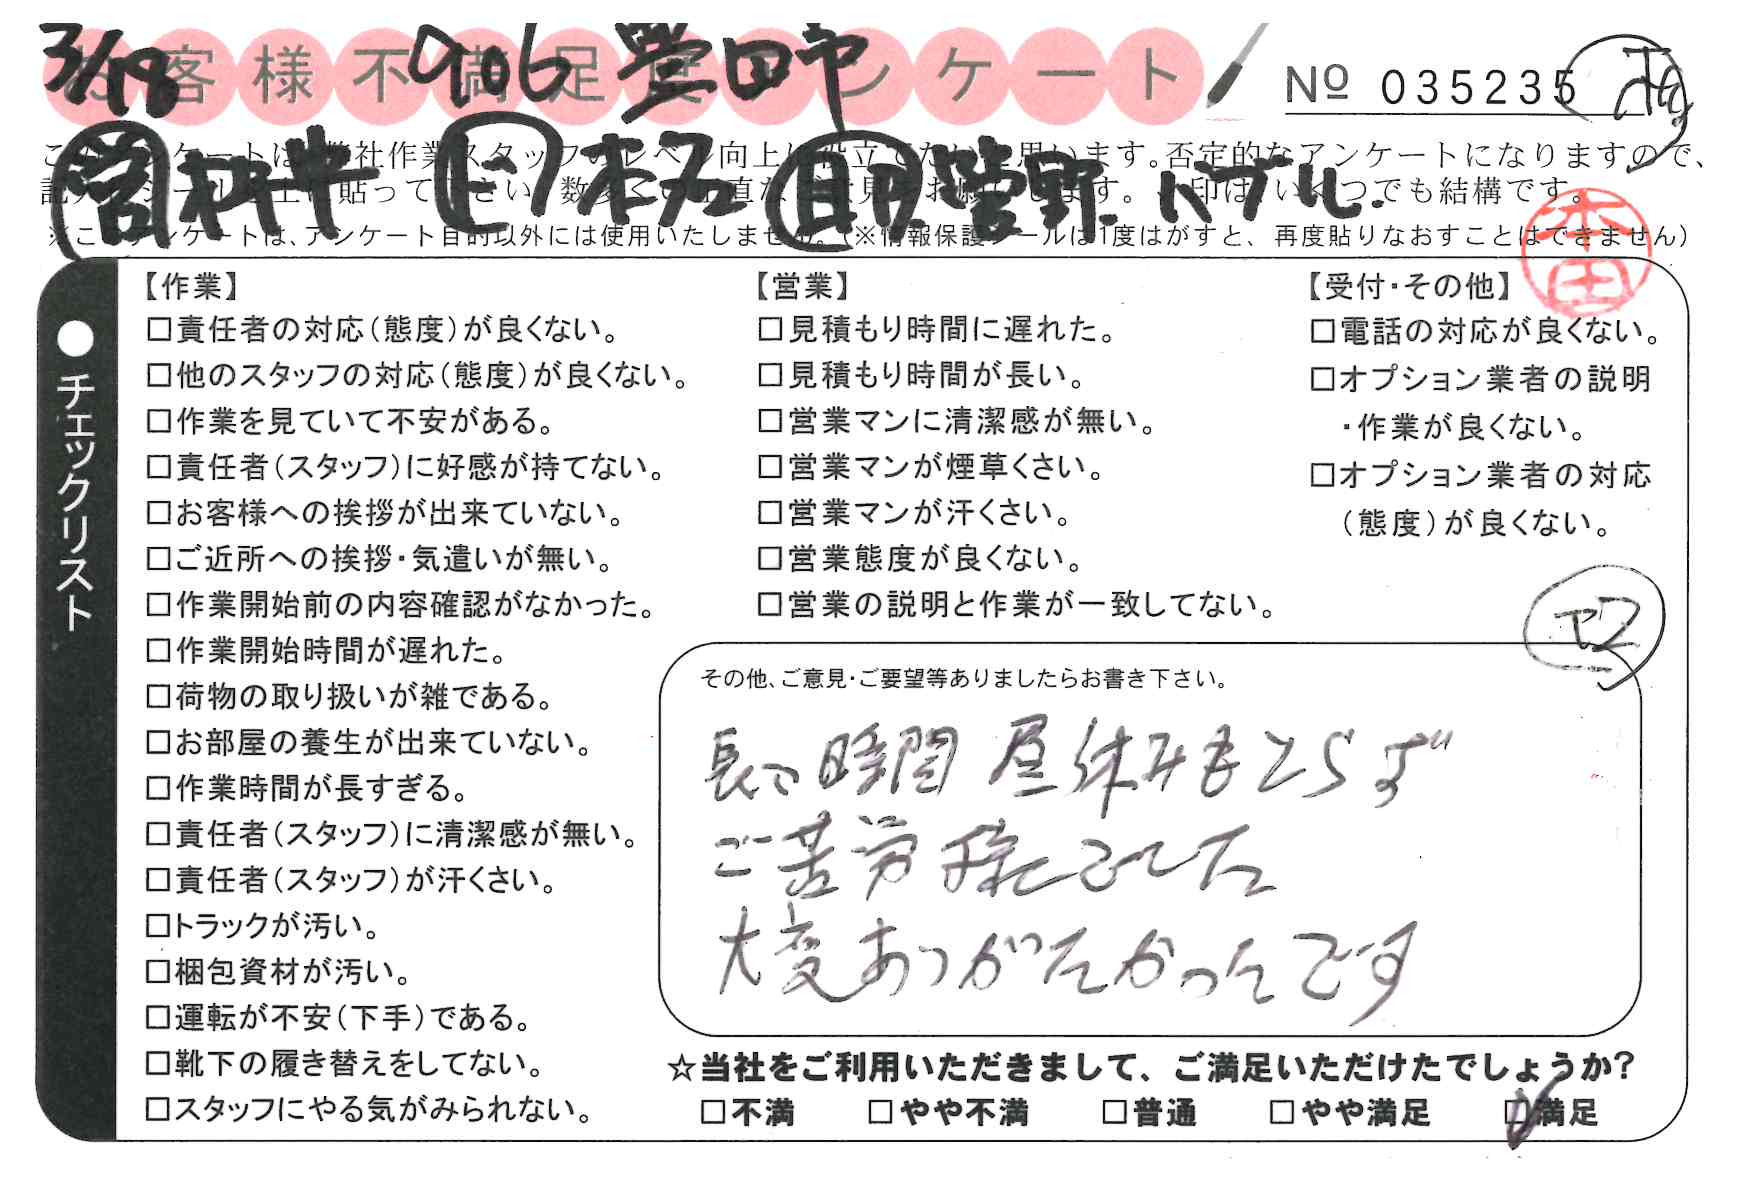 3/18 906 豊田市
お客様不満足度アンケート
№ 035235
このアンケートは、弊社作業スタッフのレベル向上に役立てたいと思います。否定的なアンケートになりますので、
記入後シールを上に貼って下さい。数多くの正直なご意見をお願いします。レ印は、いくつでも結構です。
※このアンケートは、アンケート目的以外には使用いたしません。(※情報保護シールは1度はがすと、再度貼りなおすことはできません)
本田
●チェックリスト
【作業】
□責任者の対応(態度)が良くない。
□他のスタッフの対応(態度)が良くない。
□作業を見ていて不安がある。
□責任者(スタッフ)に好感が持てない。
□お客様への挨拶が出来ていない。
□ご近所への挨拶・気遣いが無い。
□作業開始前の内容確認がなかった。
□作業開始時間が遅れた。
□荷物の取り扱いが雑である。
□お部屋の養生が出来ていない。
□作業時間が長すぎる。
□責任者(スタッフ)に清潔感が無い。
□責任者(スタッフ)が汗くさい。
□トラックが汚い。
□梱包資材が汚い。
□運転が不安(下手)である。
□靴下の履き替えをしてない。
□スタッフにやる気がみられない。
【営業】
□見積もり時間に遅れた。
□見積もり時間が長い。
□営業マンに清潔感が無い。
□営業マンが煙草くさい。
□営業マンが汗くさい。
□営業態度が良くない。
□営業の説明と作業が一致してない。
【受付・その他】
□電話の対応が良くない。
□オプション業者の説明
・作業が良くない。
□オプション業者の対応
(態度)が良くない。
その他、ご意見・ご要望等ありましたらお書き下さい。
長い時間 昼休みもとらず
ご苦労様でした
大変ありがたかったです
☆当社をご利用いただきまして、ご満足いただけたでしょうか?
□不満 □やや不満 □普通 □やや満足 ☑満足